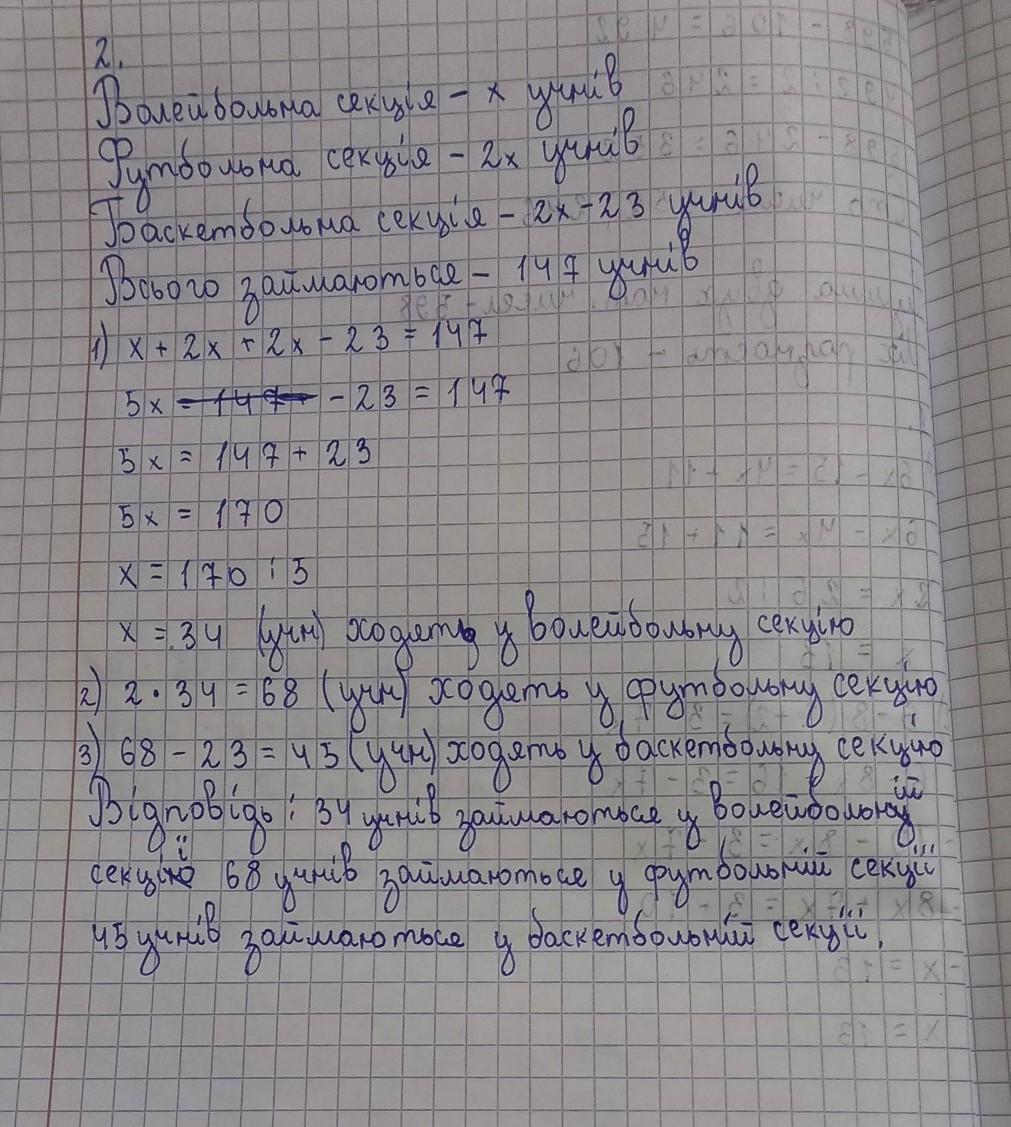 2.
Волейбольна секція – x учнів
Футбольна секція – 2x учнів
Баскетбольна секція – 2x – 23 учнів
Всього займаються – 147 учнів
1) x + 2x + 2x – 23 = 147
5x – 23 = 147
5x = 147 + 23
5x = 170
x = 170 : 5
x = 34 (учн) ходять у волейбольну секцію
2) 2 • 34 = 68 (учн) ходять у футбольну секцію
3) 68 – 23 = 45 (учн) ходять у баскетбольну секцію
Відповідь : 34 учнів займаються у волейбольній
секції 68 учнів займаються у футбольній секції
45 учнів займаються у баскетбольній секції.